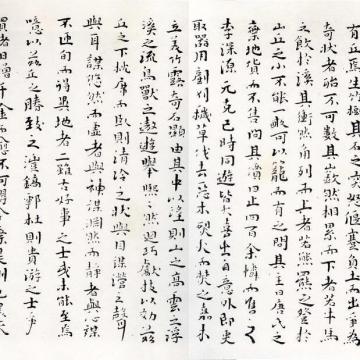 有丘焉生竹樹其石之突怒偃蹇負土而出爭為
奇狀者殆不可數其嶔然相累而下者若牛馬
之飲於溪其衝然角列而上者若熊羆之登於
山丘之小不能畝可以籠而有之問其主曰唐氏之
棄地貨而不售問其價曰止四百余憐而售之
李深源元克己時同遊皆大喜出自意外即更
取器用剷刈穢草伐去惡木烈火而焚之嘉木
立美竹露奇石顯由其中以望則山之高雲之浮
溪之流鳥獸之遨遊舉熙熙然迴巧獻技以效茲
丘之下枕席而臥則清泠之狀與目謀瀯瀯之聲
與耳謀悠然而虛者與神謀淵然而靜者與心謀
不匝旬而得異地者二雖古好事之士或未能至焉
噫以茲丘之勝致之灃鎬鄠杜則貴游之士爭
買者日增千金而愈不可得今棄是州也農夫